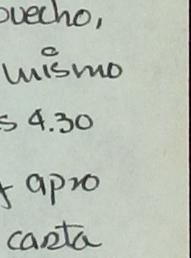 ovecho,
mismo
s 4.30
y apro
casta